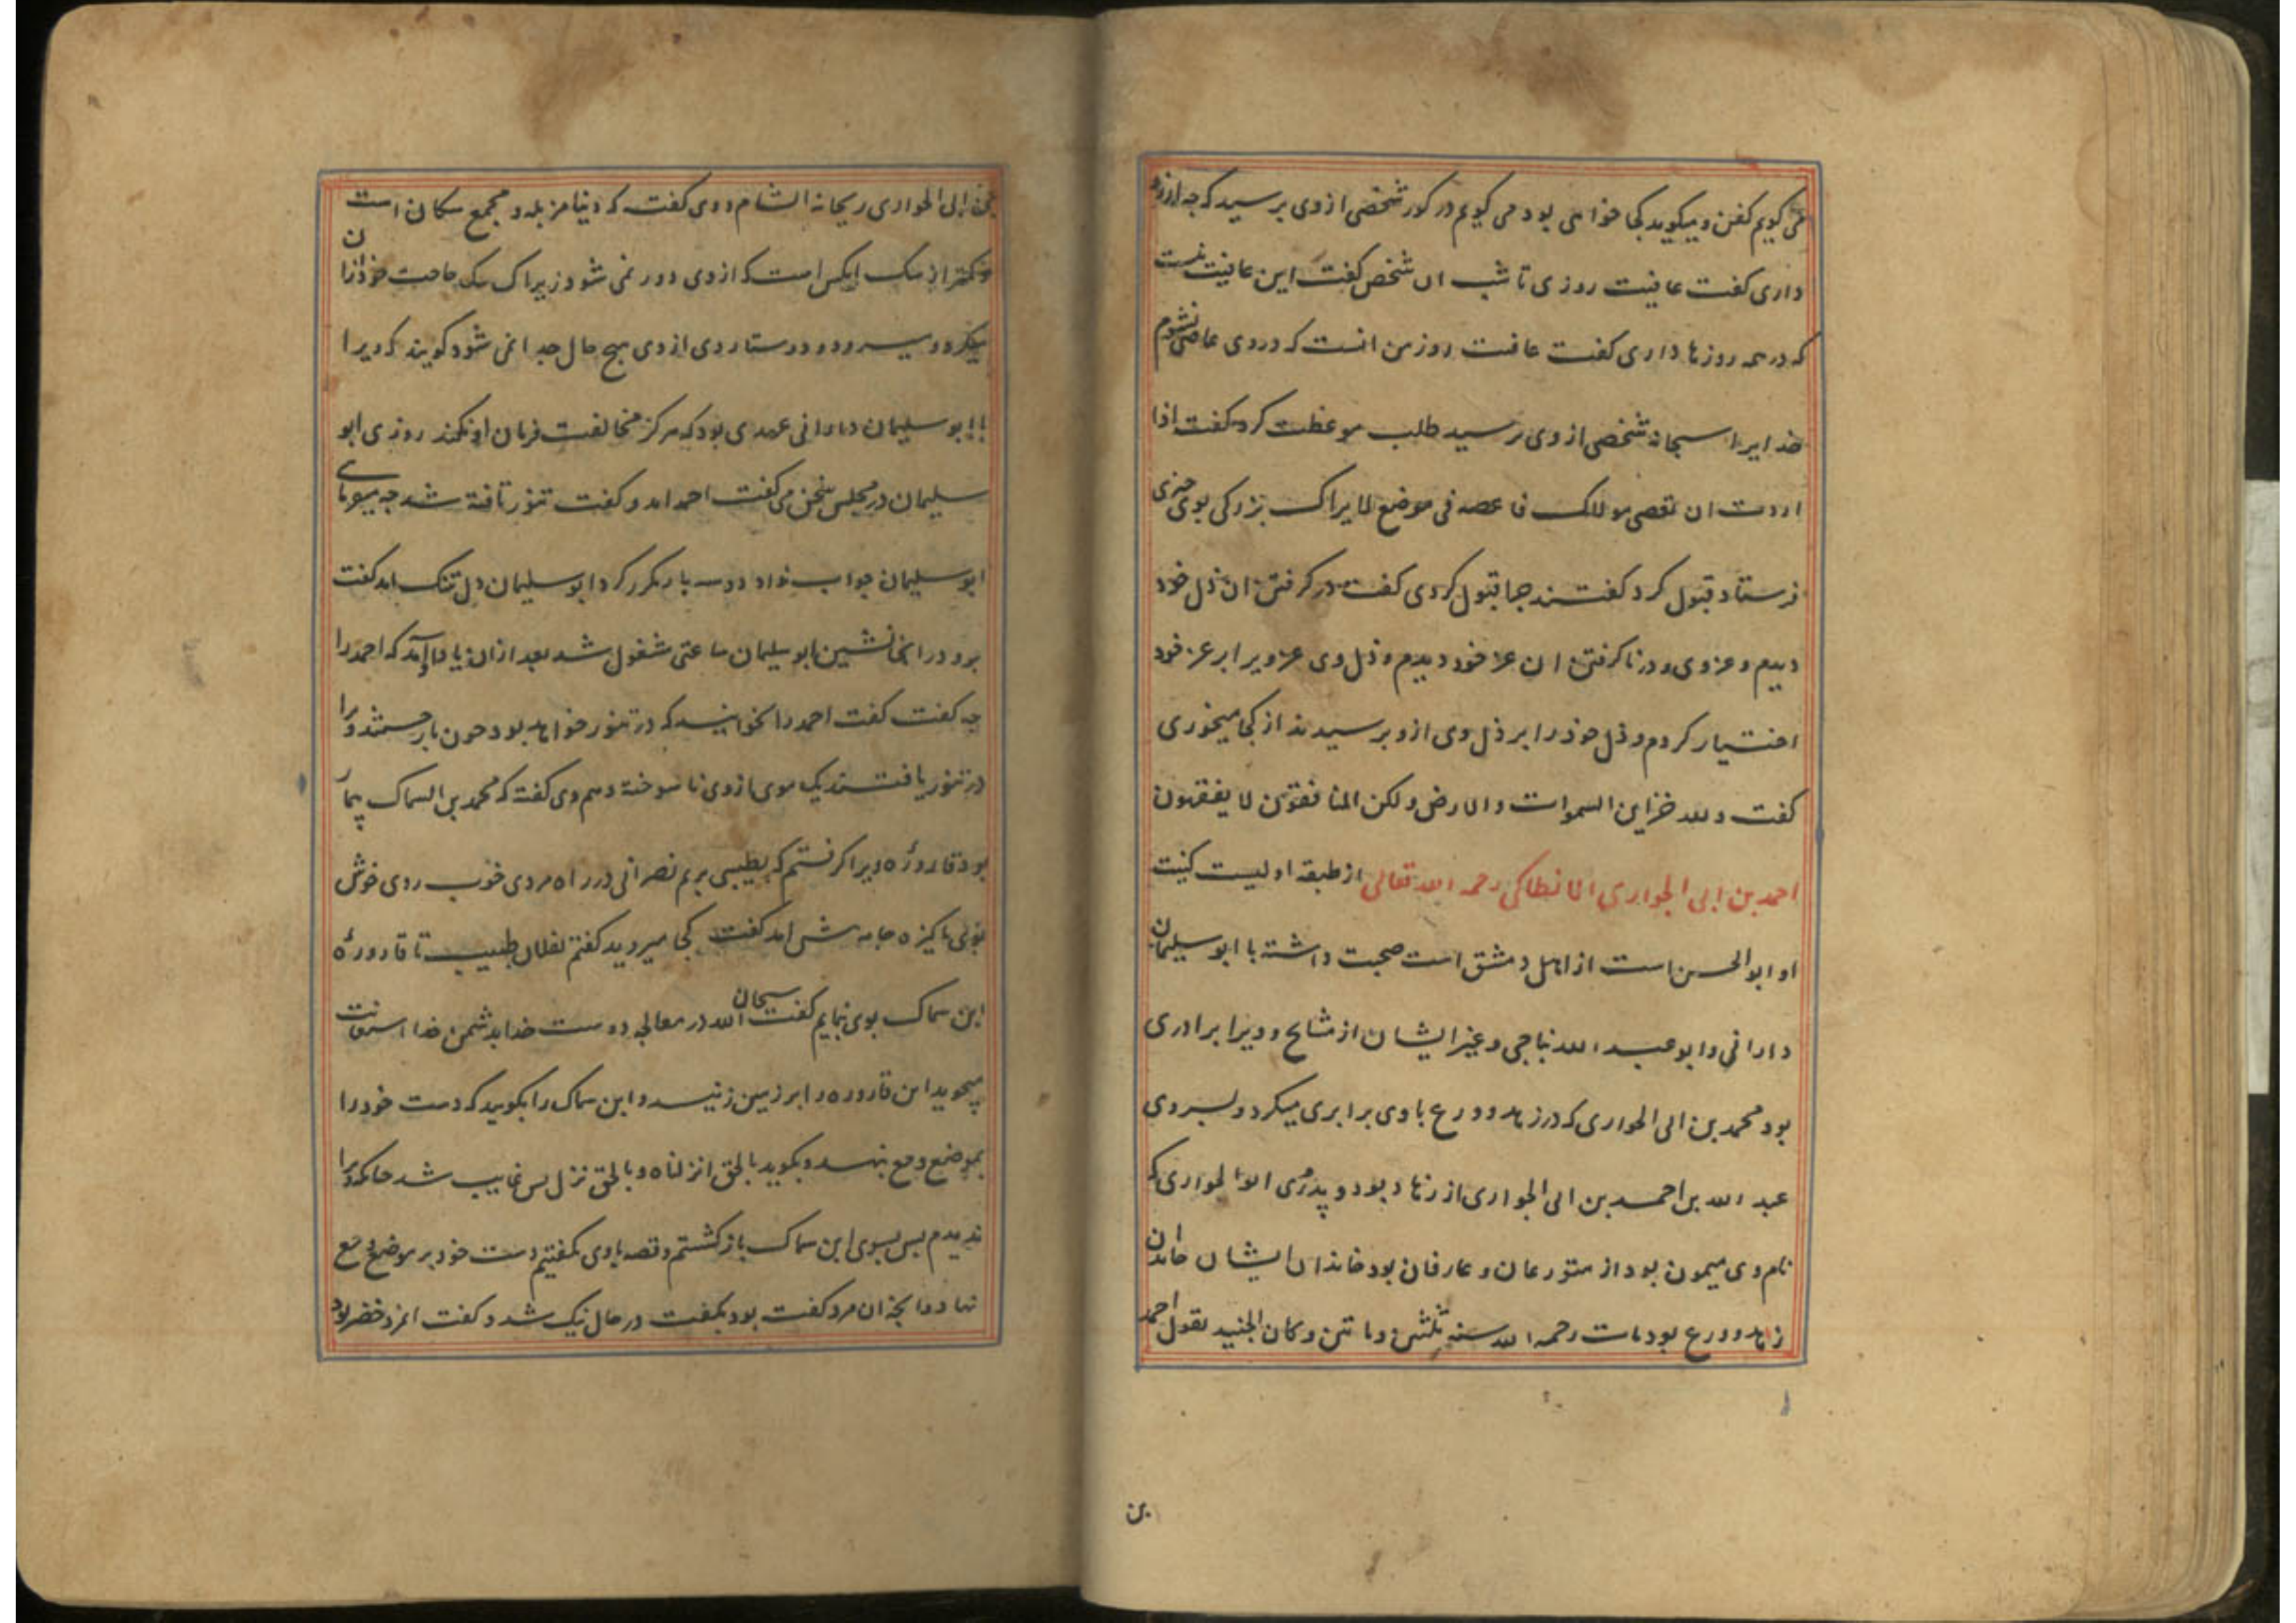 می کویم کفن و میکوید کجا خواهی بود می کویم در کور شخصی از وی برسید که جه ارزو
داری کفت عافیت روزی تا شب ان شخص کفت این عافیت نیست
که در همه روزها داری کفت عافیت روز من انست که در وی عاصی نشوم
خدایرا سبحانه شخصی از وی برسید طلب موعظت کرد کفت اذا
اردت ان تعصی مولاک فاعصه فی موضع لا یراک بزرکی بوی چیزی
فرستاد قبول کرد کفتند جرا قبول کردی کفت در کرفتن ان ذل خود
دیدم و عز وی و در ناکرفتن ان عز خود دیدم و ذل وی عز ویرا بر عز خود
اختیار کردم و ذل خود را بر ذل وی از و برسیدند از کجا میخوری
کفت و لله خزاین السموات و الارض ولکن المنافقون لا یفقهون
احمد بن ابی الجواری الانطاکی رحمه الله تعالی از طبقه اولیست کنیت
او ابو الحسن است از اهل دمشق است صحبت داشته با ابو سلیمان
دارانی و ابو عبد الله نباجی و غیر ایشان از مشایخ و ویرا برادری
بود محمد بن ابی الحواری که در زهد و ورع با وی برابری میکرد و بسر وی
عبد الله بن احمد بن ابی الجواری از زهاد بود و پدر وی ابو الحواری که
نام وی میمون بود از متورعان و عارفان بود خاندان ایشان خاندان
زهد و ورع بود مات رحمه الله سنه ثلثین و ماتین و کان الجنید یقول احمد
بن
بن ابی الحواری ریحانة الشام و وی کفت که دنیا مزبله و مجمع سکان است
و کمتر از سک انکس است که از وی دور نمی شود زیراک سک حاجت خود ازان
میکرد و میرود و دوستار وی از وی هیج حال جدا نمی شود کویند که ویرا
با ابو سلیمان دارانی عهدی بود که هرکز مخالفت فرمان او نکند روزی ابو
سلیمان در مجلس سخن می کفت احمد امد و کفت تنور تافته شد جه میفرمای
ابو سلیمان جواب نداد دو سه بار مکرر کرد ابو سلیمان دل تنک امد کفت
برو در انجا نشین ابو سلیمان ساعتی مشغول شد بعد ازان یاد امد که احمد را
جه کفت کفت احمد را بخوانید که در تنور خواهد بود جون باز جستند ویرا
در تنور یافتند یک موی از وی نا سوخته و هم وی کفته که محمد بن السماک بیمار
بود قاروره ویرا کرفتم که بطبیبی بریم نصرانی در راه مردی خوب روی خوش
بوی باکیزه جامه بیش امد کفت کجا میروید کفتم بفلان طبیب تا قاروره
ابن سماک بوی نمایم کفت سبحان الله در معالجه دوست خدا بدشمن خدا استعانت
میجوید این قاروره را بر زمین زنید و ابن سماک را بکویید که دست خود را
بموضع وجع بنهد و بکوید بالحق انزلناه و بالحق نزل بس غایب شد جنانکه ویرا
ندیدم بس بسوی ابن سماک باز کشتم و قصه با وی بکفتیم دست خود بر موضع وجع
نهاد و انجه ان مرد کفت بود بکفت در حال نیک شد و کفت انمرد خضر بود